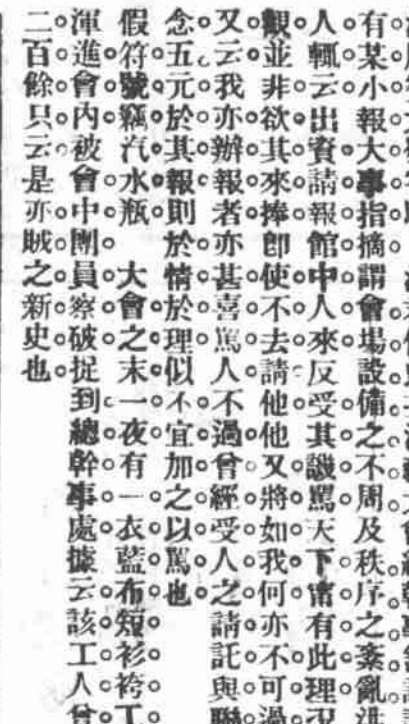 有某小報大事指摘謂會場設備之不周及秩序之紊亂
人輒云出資請報館中人來反受其譏罵天下甯有此理
觀並非欲其來捧卽使不去請他他又將如我何亦不可過
又云我亦辦報者亦甚喜罵人不過曾經受人之請託與聯
念五元於其報則於情於理似不宜加之以罵也
假符號竊汽水瓶 大會之末一夜有一衣藍布短衫袴工
渾進會內被會中團員察破捉到總幹事處據云該工人曾
二百餘只云是亦賊之新史也